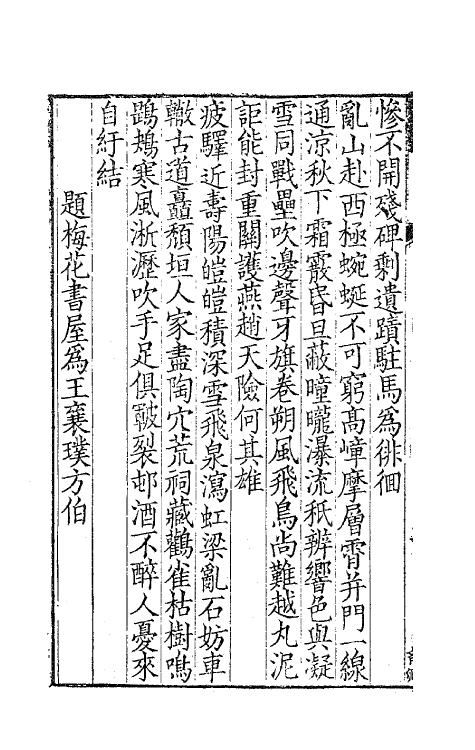 慘不開殘碑剩遺蹟駐馬爲徘徊
亂山赴西極蜿蜒不可窮高嶂摩層霄并門一線
通涼秋下霜霰昏旦蔽曈曨瀑流秖辨響色與凝
雪同戰壘吹邊聲牙旗卷朔風飛鳥尚難越丸泥
詎能封重關護燕趙天險何其雄
疲驛近壽陽皚皚積深雪飛泉瀉虹梁亂石妨車
轍古道矗頹垣人家盡陶穴荒祠藏鸛雀枯樹鳴
鵾鴂寒風淅瀝吹手足俱皸裂邨酒不醉人憂來
自紆結
題梅花書屋爲王襄璞方伯